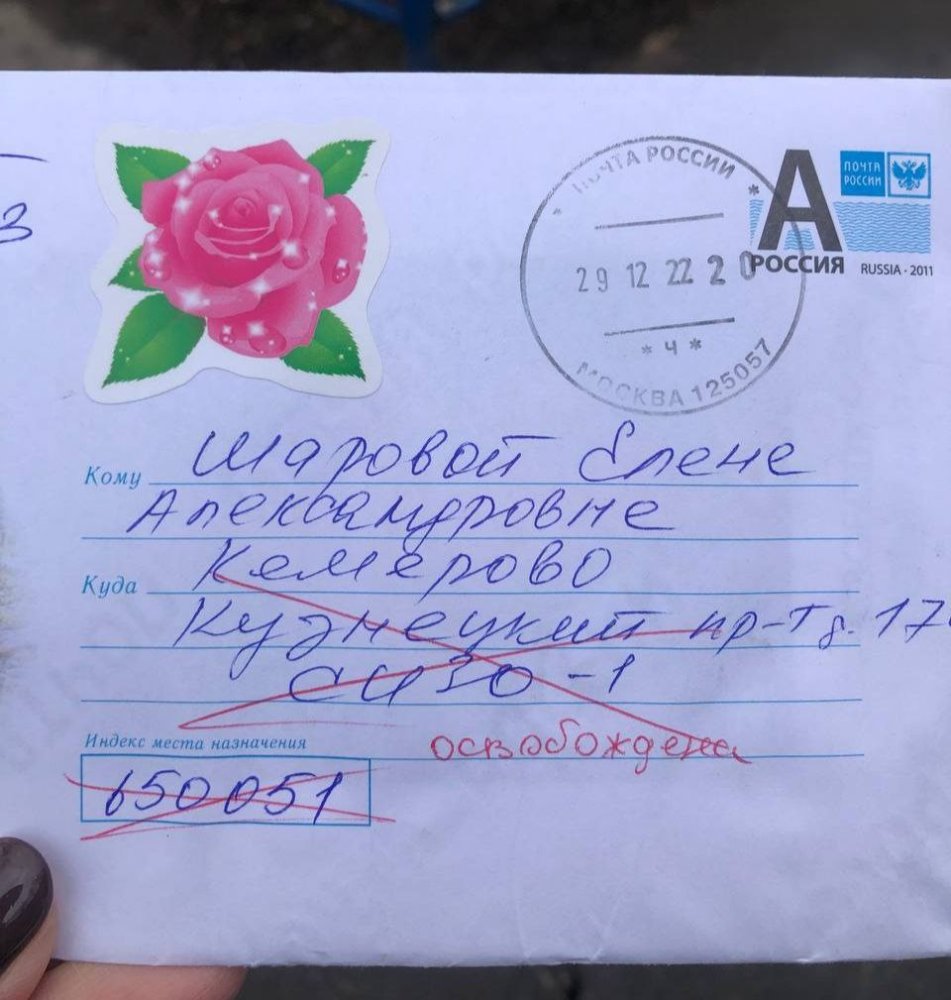 ПОЧТА РОССИИ
29 12 22 20
* Ч *
МОСКВА 125057
А
РОССИЯ
ПОЧТА
РОССИИ
RUSSIA · 2011
З
Кому Шаровой Елене
Александровне
Куда Кемерово
Кузнецкий пр-т д. 17
СИЗО-1
Индекс места назначения
освобождена
650051